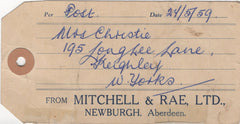 Per Post. Date 24/5/59.
Mrs Christie
195 Longlee Lane,
Keighley
W Yorks
FROM MITCHELL & RAE, LTD.,
NEWBURGH, Aberdeen.